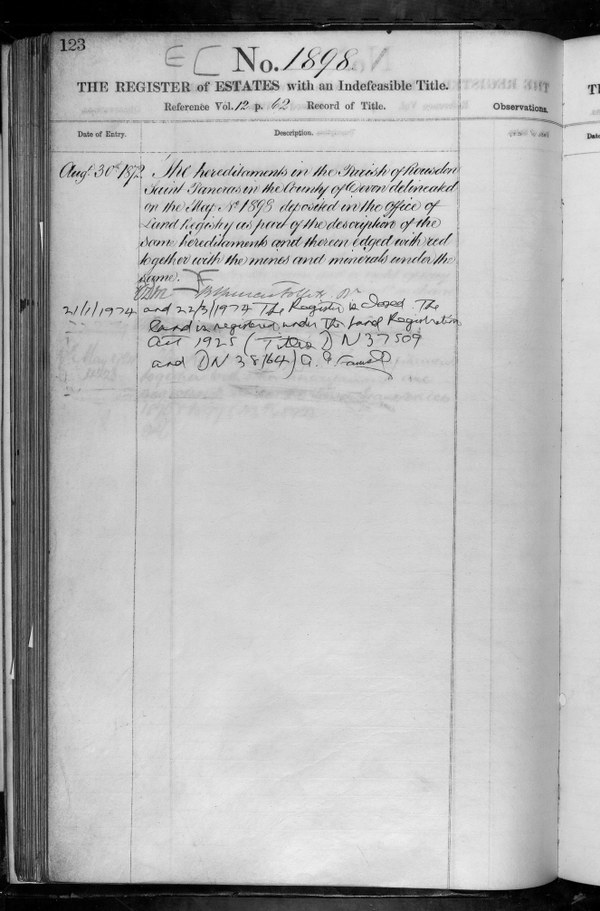 123
EC
No. 1898.
THE REGISTER of ESTATES with an Indefeasible Title.
Reference Vol. 12 p. 62 Record of Title.
Observations.
Date of Entry.
Description.
Augt. 30th 1872
The hereditaments in the Parish of Rousdon
Saint Pancras in the County of Devon delineated
on the Map No. 1898 deposited in the Office of
Land Registry as part of the description of the
same hereditaments and therein edged with red
together with the mines and minerals under the
same.
21/1/1974 and 22/3/1974 The Register is closed. The
land is registered under the Land Registration
Act 1925 (Titles DN 37509
and DN 38164)